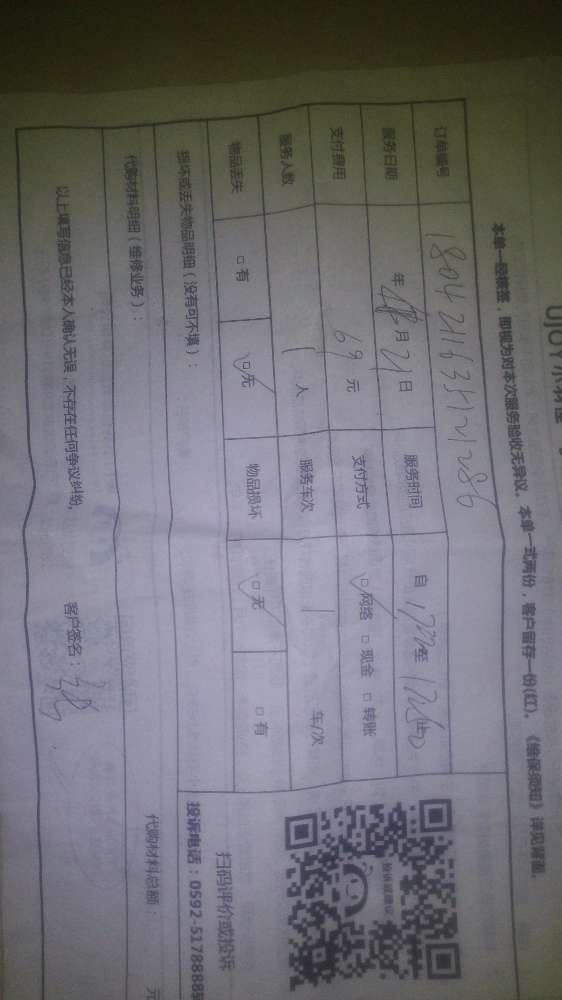 本单一经签签，即视为对本次服务验收无异议。本单一式两份，客户留存一份(红)。《维保须知》详见背面。
订单编号
服务日期 年 月 21 日 服务时间 自 至 止
支付费用 69 元 支付方式 □网络 □现金 □转账
服务人数 1 人 服务车次 1 车/次
物品丢失 □有 □无 物品损坏 □无 □有
损坏或丢失物品明细（没有可不填）：
代购材料明细（维修业务）：
代购材料总额： 元
以上填写信息已经本人确认无误，不存在任何争议纠纷。
客户签名：
投诉或建议
扫码评价或投诉
投诉电话：0592-5178888转